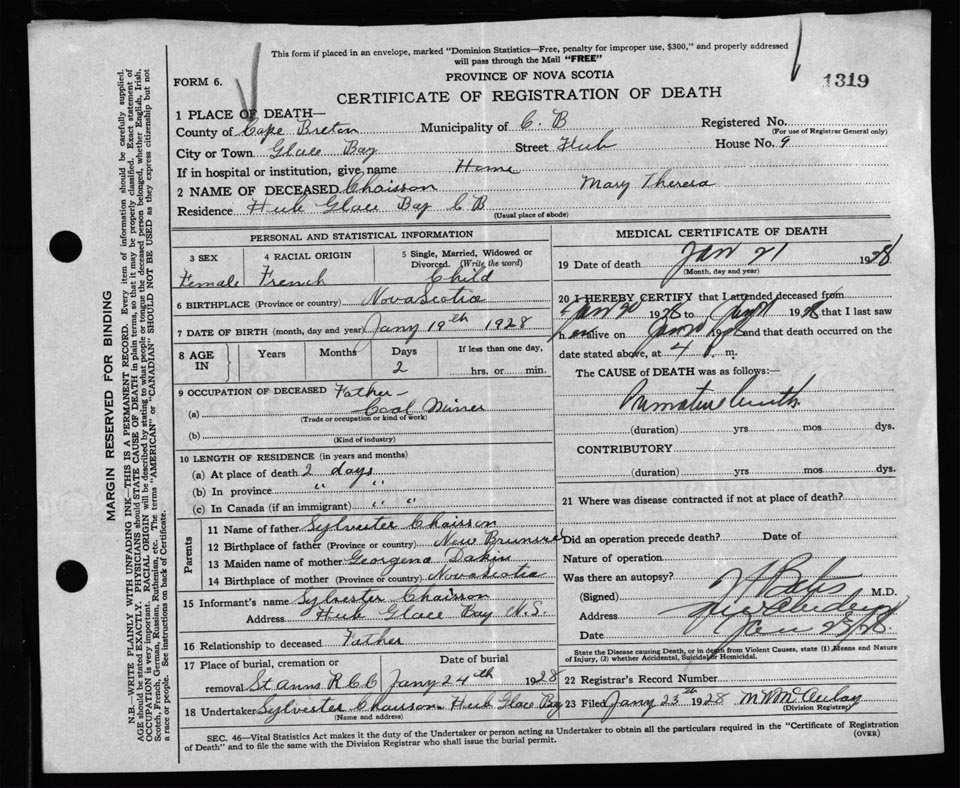 This form if placed in an envelope, marked "Dominion Statistics—Free, penalty for improper use, $300," and properly addressed
will pass through the Mail "FREE"
FORM 6.
PROVINCE OF NOVA SCOTIA
1319
CERTIFICATE OF REGISTRATION OF DEATH
1 PLACE OF DEATH—
County of Cape Breton Municipality of C. B Registered No.
(For use of Registrar General only)
City or Town Glace Bay Street Hub House No. 9
If in hospital or institution, give name Home
2 NAME OF DECEASED Chaisson Mary Theresa
Residence Hub Glace Bay C B
(Usual place of abode)
PERSONAL AND STATISTICAL INFORMATION
3 SEX 4 RACIAL ORIGIN 5 Single, Married, Widowed or
Divorced. (Write the word)
Female French Child
6 BIRTHPLACE (Province or country) Nova Scotia
7 DATE OF BIRTH (month, day and year) Jany 19th 1928
8 AGE IN Years Months Days If less than one day,
2 hrs. or min.
9 OCCUPATION OF DECEASED Father—
(a) Coal Miner
(Trade or occupation or kind of work)
(b)
(Kind of industry)
10 LENGTH OF RESIDENCE (in years and months)
(a) At place of death 2 days
(b) In province " "
(c) In Canada (if an immigrant) " "
Parents
11 Name of father Sylvester Chaisson
12 Birthplace of father (Province or country) New Brunswick
13 Maiden name of mother Georgina Dakin
14 Birthplace of mother (Province or country) Nova Scotia
15 Informant's name Sylvester Chaisson
Address Hub Glace Bay N.S.
16 Relationship to deceased Father
17 Place of burial, cremation or Date of burial
removal St Anns R C C Jany 24th 1928
18 Undertaker Sylvester Chaisson Hub Glace Bay
(Name and address)
MEDICAL CERTIFICATE OF DEATH
19 Date of death Jan 21 1928
(Month, day and year)
20 I HEREBY CERTIFY that I attended deceased from
Jan 20 1928 to Jan 21 1928 that I last saw
h er alive on Jan 1928 and that death occurred on
date stated above, at 4 P. m.
The CAUSE of DEATH was as follows:—
Premature birth
(duration) yrs mos dys.
CONTRIBUTORY
(duration) yrs mos dys.
21 Where was disease contracted if not at place of death?
Did an operation precede death? Date of
Nature of operation
Was there an autopsy?
(Signed) M.D.
Address
Date Jan 23/28
State the Disease causing Death, or in death from Violent Causes, state (1) Means and Nature
of Injury, (2) whether Accidental, Suicidal or Homicidal.
22 Registrar's Record Number
23 Filed Jany 23th 1928 M W McAulay
(Division Registrar)
SEC. 46—Vital Statistics Act makes it the duty of the Undertaker or person acting as Undertaker to obtain all the particulars required in the "Certificate of Registration
of Death" and to file the same with the Division Registrar who shall issue the burial permit.
(OVER)
MARGIN RESERVED FOR BINDING
N.B.—WRITE PLAINLY WITH UNFADING INK—THIS IS A PERMANENT RECORD. Every item of information should be carefully supplied.
AGE should be stated EXACTLY. PHYSICIANS should STATE CAUSE OF DEATH in plain terms, so that it may be properly classified. Exact statement of
OCCUPATION is very important. RACIAL ORIGIN will be described by stating to what people or tongue the deceased person belonged, whether English, Irish,
Scotch, French, German, Russian, Ruthenian, etc. The terms "AMERICAN" or "CANADIAN" SHOULD NOT BE USED as they express citizenship but not
a race or people. See instructions on back of Certificate.